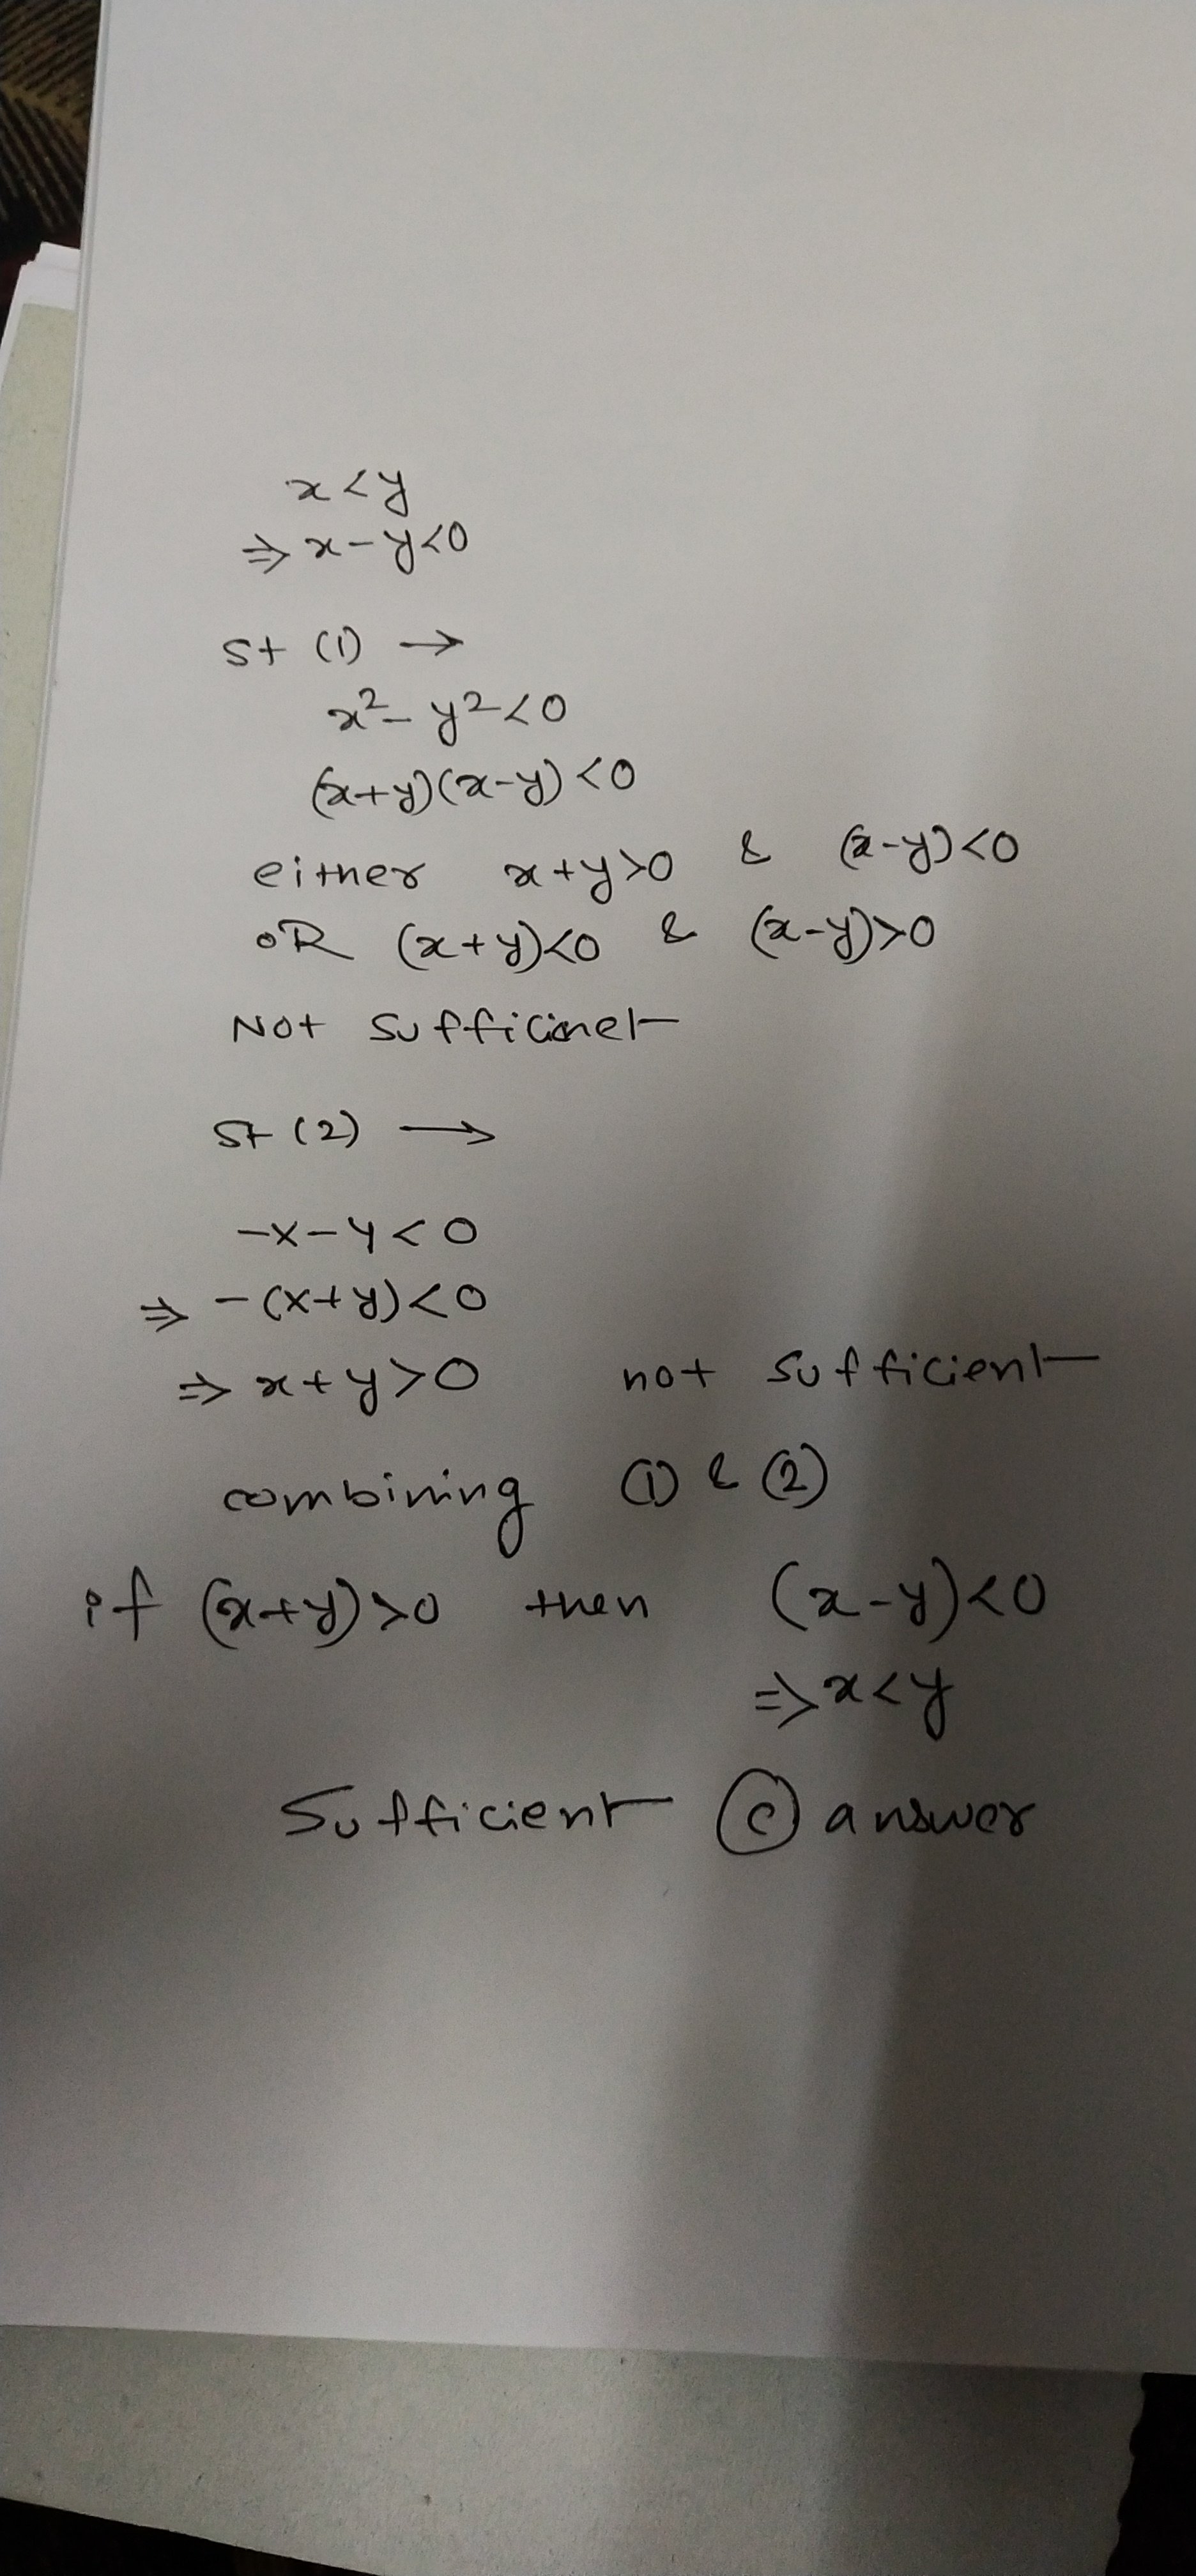 x<y
⇒ x-y<0
St (1) →
x²- y²<0
(x+y)(x-y)<0
either x+y>0 & (x-y)<0
OR (x+y)<0 & (x-y)>0
Not sufficinet
St (2) →
-x-y<0
⇒ -(x+y)<0
⇒ x+y>0 not sufficient
combining ① & ②
if (x+y)>0 then (x-y)<0
⇒x<y
Sufficient Ⓒ answer